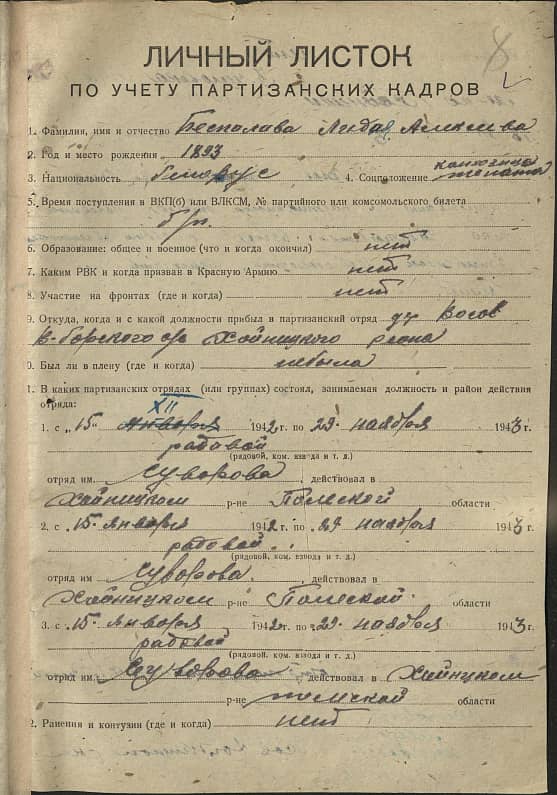 8
ЛИЧНЫЙ ЛИСТОК
ПО УЧЕТУ ПАРТИЗАНСКИХ КАДРОВ
1. Фамилия, имя и отчество Беспалава Лидая Алксевва
2. Год и место рождения 1893
3. Национальность беларус 4. Соцположение
5. Время поступления в ВКП(б) или ВЛКСМ, № партийного или комсомольского билета
б/п.
6. Образование: общее и военное (что и когда окончил) нет
7. Каким РВК и когда призван в Красную Армию нет
8. Участие на фронтах (где и когда) нет
9. Откуда, когда и с какой должности прибыл в партизанский отряд
В-борского с/с Хойницкого реона
0. Был ли в плену (где и когда) небыла
1. В каких партизанских отрядах (или группах) состоял, занимаемая должность и район действия
отряда: XII
1. с „15" января 1942 г. по 29 наября 1943 г.
радовой
(рядовой, ком. взвода и т. д.)
отряд им. Суворова, действовал в
Хойницком р-не Полеской области
2. с „15 января 1942 г. по 29 наября 1943 г.
радовой.
(рядовой, ком. взвода и т. д.)
отряд им Суворова. действовал в
Хойницком р-не Полеской. области
3. с „15 января 1942 г. по 29 наября 1943 г.
радовой
(рядовой, ком. взвода и т. д.)
отряд им. Суворова, действовал в Хойницком
р-не области
2. Ранения и контузии (где и когда) нет